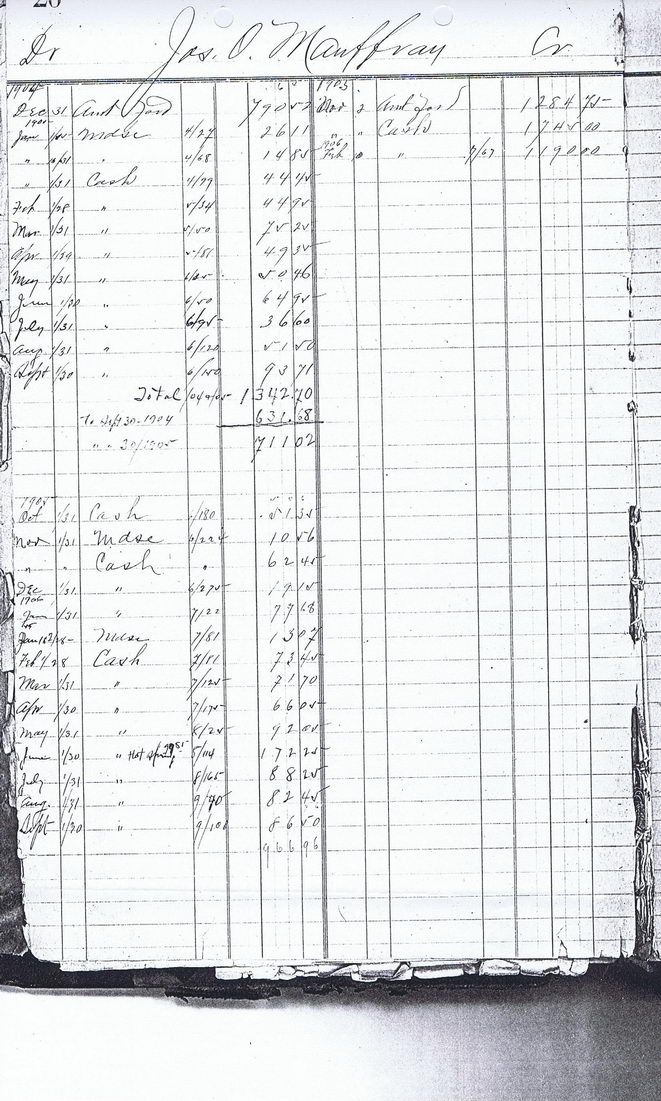 20
Dr Jos. O. Mauffray Cr
1904 1905
Dec 31 Amt Ford 790 52 Nov 2 Amt ford 1284 75
1905
Jan Mdse 4/27 26 11 " " Cash 1745 00
" " 4/68 14 85 1906 Feb " 7/67 1190 00
" 1/31 Cash 4/99 44 45
Feb 1/28 " 5/34 44 95
Mar 1/31 " 5/50 75 25
Apr " 49 35
May 1/31 " 50 46
June 1/30 " 6/50 64 95
July 1/31 " 6/95 36 60
Aug 1/31 " 6/120 51 50
Sept 1/30 " 6/150 93 71
Total 1342.70
To Sept 30-1904 631.68
" " 30/1905 711 02
1905
Oct 1/31 Cash /180 51 35
Nov 1/31 Mdse 6/224 10 56
" " Cash " 62 45
Dec 1/31 " 6/275 19 15
1906
Jan 1/31 " 7/22 77 68
Jan Mdse 7/51 13 07
Feb 1/28 Cash 7/51 73 45
Mar 1/31 " 7/125 71 70
Apr 1/30 " 7/175 66 05
May 1/31 " 8/25 92 05
June 1/30 " Hot Springs 172 25
July 1/31 " 8/165 88 25
Aug. 1/31 " 9/40 82 45
Sept 1/30 " 9/100 86 50
966 96